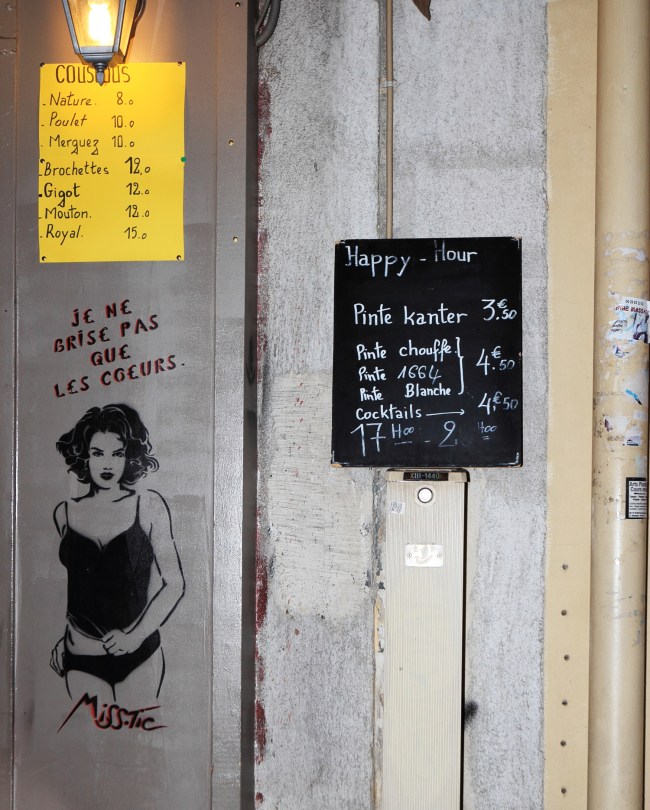 COUSCOUS
- Nature. 8.0
- Poulet 10.0
- Merguez 10.0
- Brochettes 12,0
- Gigot 12.0
- Mouton. 12.0
- Royal. 15.0
JE NE
BRISE PAS
QUE
LES CŒURS.
MISS.TIC
Happy - Hour
Pinte kanter 3.€50
Pinte chouffe.
Pinte 1664
Pinte Blanche
4.€50
Cocktails → 4,€50
17 H00 - 2 H00
XIII-1440